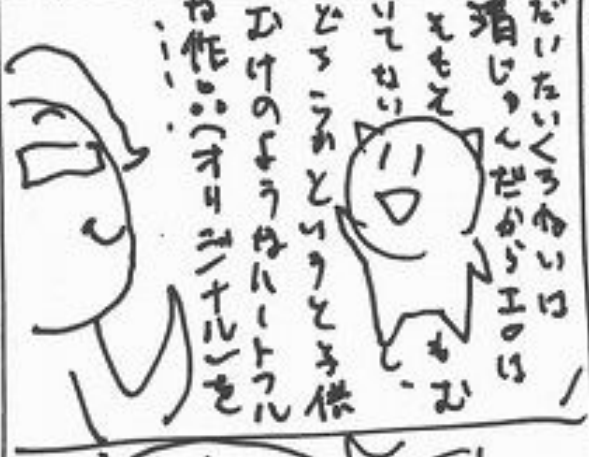 だいたいくろねいは
清じゅんだからエロは
そもそもむ
いてないし、
どちらかというと子供
むけのようなハートフル
な作品(オリジナル)を
……